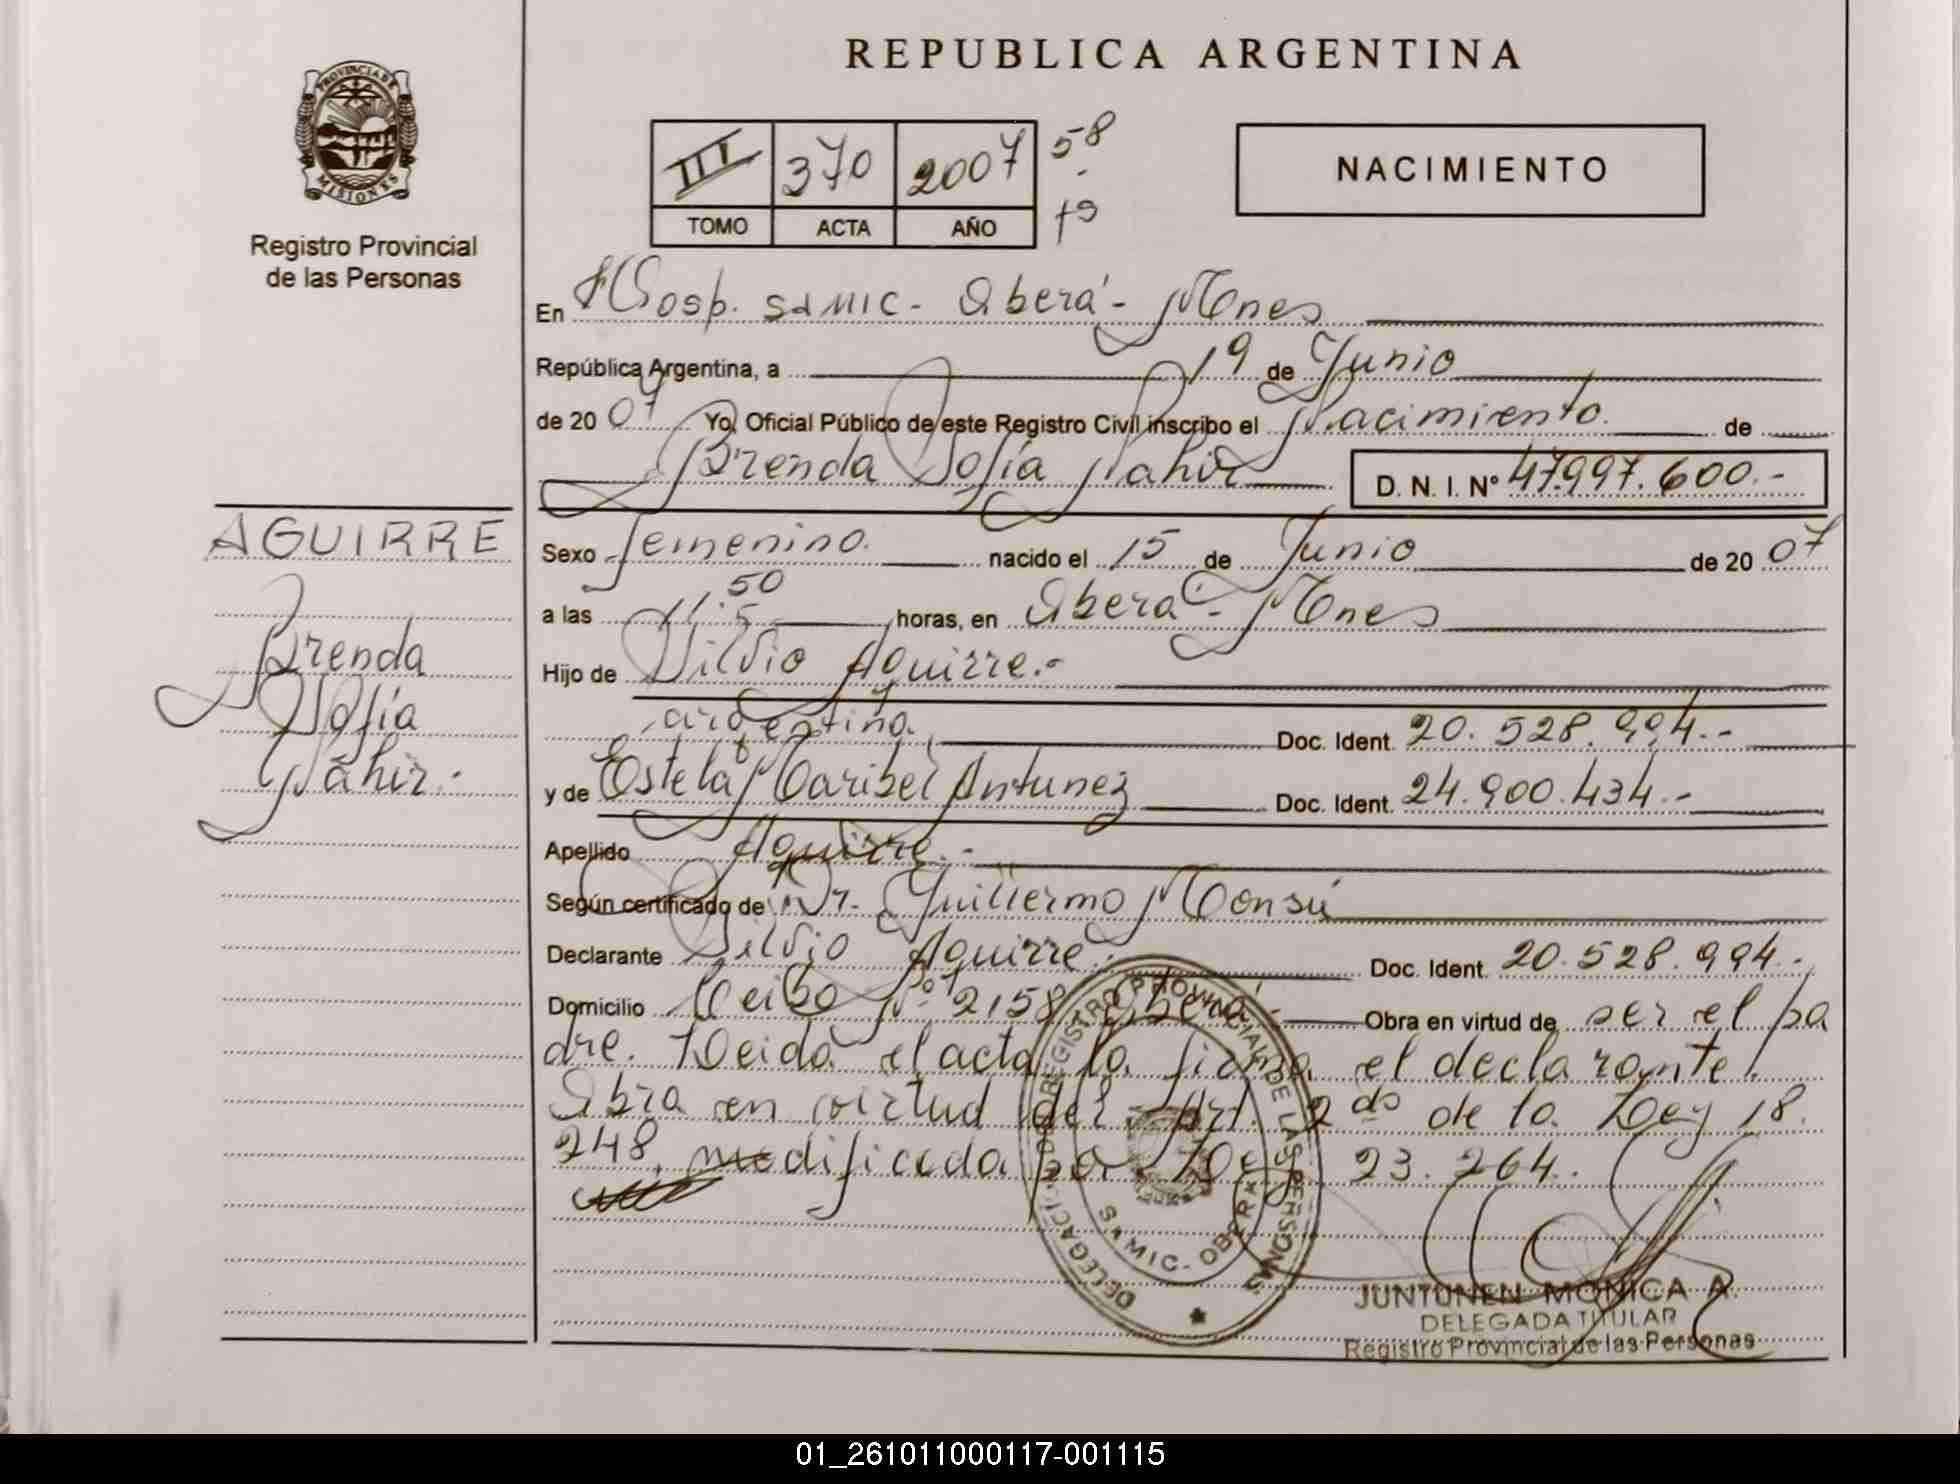 REPUBLICA ARGENTINA
PROVINCIA DE
MISIONES
Registro Provincial
de las Personas
III 370 2007 58
TOMO ACTA AÑO 19
NACIMIENTO
En Hosp. SAMIC - Oberá - Mnes
República Argentina, a 19 de Junio
de 20 07 Yo, Oficial Público de este Registro Civil inscribo el Nacimiento de
Brenda Sofía Nahir D. N. I. Nº 47.997.600.-
AGUIRRE
Brenda
Sofía
Nahir.-
Sexo femenino. nacido el 15 de Junio de 20 07
a las 11.50 horas, en Oberá - Mnes
Hijo de Silvio Aguirre.-
argentina. Doc. Ident. 20.528.994.-
y de Estela Maribel Antunez Doc. Ident. 24.900.434.-
Apellido Aguirre.-
Según certificado de Dr. Guillermo Monsú
Declarante Silvio Aguirre. Doc. Ident. 20.528.994.-
Domicilio Ceibo Nº 2158 Oberá - Obra en virtud de ser el pa
dre. Leida el acta la firma el declarante.
Obra en virtud del Art. 2do de la Ley 18.
248, modificada por Ley 23.264.
DELEGACION REGISTRO PROVINCIAL DE LAS PERSONAS
SAMIC - OBERA
JUNTUNEN MONICA A.
DELEGADA TITULAR
Registro Provincial de las Personas
01_261011000117-001115